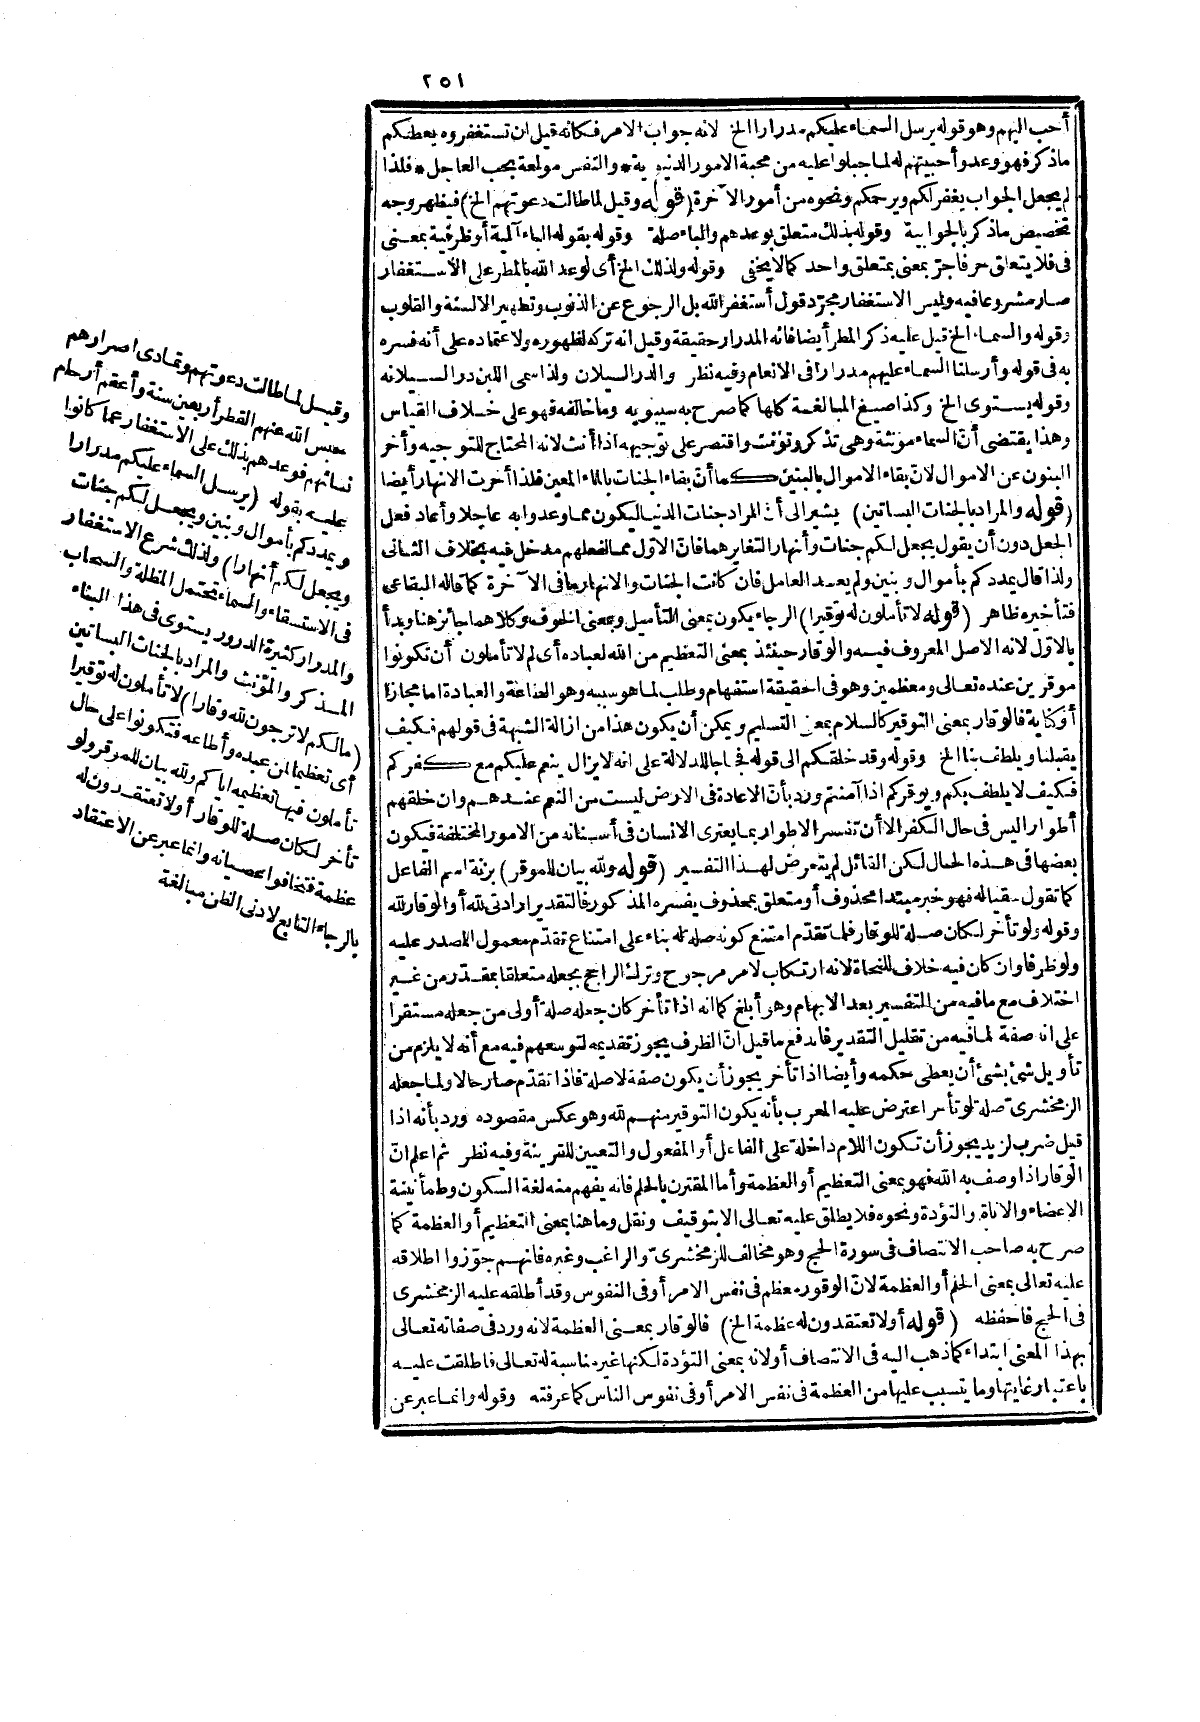 ٢٥١
أحب اليهم وهو قوله يرسل السماء عليكم مدرارا الخ لانه جواب الامر فكانه قيل ان تستغفروه يعطكم
ماذكر فهو وعد وأحبيتهم له لما جبلوا عليه من محبة الامور الدنيوية * والنفس مولعة بحب العاجل * فلذا
لم يجعل الجواب يغفر لكم ويرحمكم ونحوه من أمور الآخرة (قوله وقيل لما طالت دعوتهم الخ) فيظهر وجه
تخصيص ماذكر بالجوابية وقوله بذلك متعلق بوعدهم والباء صلة وقوله بقوله الباء آلية أو ظرفية بمعنى
فى فلا يتعلق حرفا جر بمعنى بمتعلق واحد كما لا يخفى وقوله ولذلك الخ أى لوعد الله بالمطر على الاستغفار
صار مشروعا فيه وليس الاستغفار مجرّد قول أستغفر الله بل الرجوع عن الذنوب وتطهير الالسنة والقلوب
وقوله والسماء الخ قيل عليه ذكر المطر أيضا فانه المدرار حقيقة وقيل انه تركه لظهوره ولاعتماده على أنه فسره
به فى قوله وأرسلنا السماء عليهم مدرارا فى الانعام وفيه نظر والدر السيلان ولذا سمى اللبن در السيلانه
وقوله يستوى الخ وكذا صيغ المبالغة كلها كما صرح به سيبويه وما خالفه فهو على خلاف القياس
وهذا يقتضى أنّ السماء مؤنثة وهى تذكر وتؤنث واقتصر على توجيهه اذا أنث لانه المحتاج للتوجيه وأخر
البنون عن الاموال لانّ بقاء الاموال بالبنين كما أنّ بقاء الجنات بالماء المعين فلذا أخرت الانهار أيضا
(قوله والمراد بالجنات البساتين) يشعر الى أنّ المراد جنات الدنيا ليكون مما وعدوا به عاجلا وأعاد فعل
الجعل دون أن يقول يجعل لكم جنات وأنهارا لتغايرهما فانّ الاوّل مما لفعلهم مدخل فيه بخلاف الثانى
ولذا قال يمددكم بأموال وبنين ولم يعد العامل فان كانت الجنات والانهار ما فى الآخرة كما قاله البقاعى
فتأخيره ظاهر (قوله لا تأملون له توقيرا) الرجاء يكون بمعنى التأميل وبمعنى الخوف وكلاهما جائز هنا وبدأ
بالاوّل لانه الاصل المعروف فيه والوقار حينئذ بمعنى التعظيم من الله لعباده أى لم لا تأملون أن تكونوا
موقرين عنده تعالى ومعظمين وهو فى الحقيقة استفهام وطلب لما هو سببه وهو الطاعة والعبادة اما مجازا
أو كناية فالوقار بمعنى التوقير كالسلام بمعنى التسليم ويمكن أن يكون هذا من ازالة الشبهة فى قولهم فكيف
يقبلنا ويلطف بنا الخ وقوله وقد خلقكم الى قوله فجاجا للدلالة على انه لا يزال ينعم عليكم مع كفركم
فكيف لا يلطف بكم ويوقركم اذا آمنتم ورد بأنّ الاعادة فى الارض ليست من النعم عندهم وان خلقهم
أطوارا ليس فى حال الكفر الا أن تفسر الاطوار بما يعترى الانسان فى أسنانه من الامور المختلفة فيكون
بعضها فى هذه الحال لكن القائل لم يتعرض لهذا التفسير (قوله ولله بيان للموقر) بزنة اسم الفاعل
كما تقول سقيا له فهو خبر مبتدا محذوف أو متعلق بمحذوف يفسره المذكور فالتقدير ارادتى لله أو الوقار لله
وقوله ولو تأخر لكان صلة للوقار فلما تقدّم امتنع كونه صلة له بناء على امتناع تقدّم معمول المصدر عليه
ولو ظرفا وان كان فيه خلاف للنحاة لانه ارتكاب لامر مرجوح وترك الراجح بجعله متعلقا بمقدّر من غير
اختلاف مع ما فيه من التفسير بعد الابهام وهو أبلغ كما انه اذا تأخر كان جعله صلة أولى من جعله مستقرا
على انه صفة لما فيه من تقليل التقدير فاندفع ما قيل انّ الظرف يجوز تقديمه لتوسعهم فيه مع أنه لا يلزم من
تأويل شئ بشئ أن يعطى حكمه وأيضا اذا تأخر يجوز أن يكون صفة لا صلة فاذا تقدّم صار حالا ولما جعله
الزمخشرى صلة لو تأخر اعترض عليه المعرب بأنه يكون التوقير منهم لله وهو عكس مقصوده ورد بأنه اذا
قيل ضرب لزيد يجوز أن تكون اللام داخلة على الفاعل أو المفعول والتعيين للقرينة وفيه نظر ثم اعلم انّ
الوقار اذا وصف به الله فهو بمعنى التعظيم أو العظمة وأما المقترن بالحلم فانه يفهم منه لغة السكون وطمأنينة
الاعضاء والاناة والتؤدة ونحوه فلا يطلق عليه تعالى الا بتوقيف ونقل وما هنا بمعنى التعظيم أو العظمة كما
صرح به صاحب الانتصاف فى سورة الحج وهو مخالف للزمخشرىّ والراغب وغيره فانهم جوّزوا اطلاقه
عليه تعالى بمعنى الحلم أو العظمة لانّ الوقور معظم فى نفس الامر أو فى النفوس وقد أطلقه عليه الزمخشرى
فى الحج فاحفظه (قوله أو لا تعتقدون له عظمة الخ) فالوقار بمعنى العظمة لانه ورد فى صفاته تعالى
بهذا المعنى ابتداء كما ذهب اليه فى الانتصاف أو لانه بمعنى التؤدة لكنها غير مناسبة له تعالى فاطلقت عليه
باعتبار غايتها وما يتسبب عليها من العظمة فى نفس الامر أو فى نفوس الناس كما عرفته وقوله وانما عبر عن
وقيل لما طالت دعوتهم وتمادى اصرارهم
حبس الله عنهم القطر أربعين سنة وأعقم أرحام
نسائهم فوعدهم بذلك على الاستغفار عما كانوا
عليه بقوله (يرسل السماء عليكم مدرارا
ويمددكم بأموال وبنين ويجعل لكم جنات
ويجعل لكم أنهارا) ولذلك شرع الاستغفار
فى الاستسقاء والسماء تحتمل المظلة والسحاب
والمدرار كثيرة الدرور يستوى فى هذا البناء
المذكر والمؤنث والمراد بالجنات البساتين
(مالكم لا ترجون لله وقارا) لا تأملون له توقيرا
أى تعظيما لمن عبده وأطاعه فتكونوا على حال
تأملون فيها تعظيمه اياكم ولله بيان للموقر ولو
تأخر لكان صلة للوقار أو لا تعتقدون له
عظمة فتخافوا عصيانه وانما عبر عن الاعتقاد
بالرجاء التابع لادنى الظن مبالغة